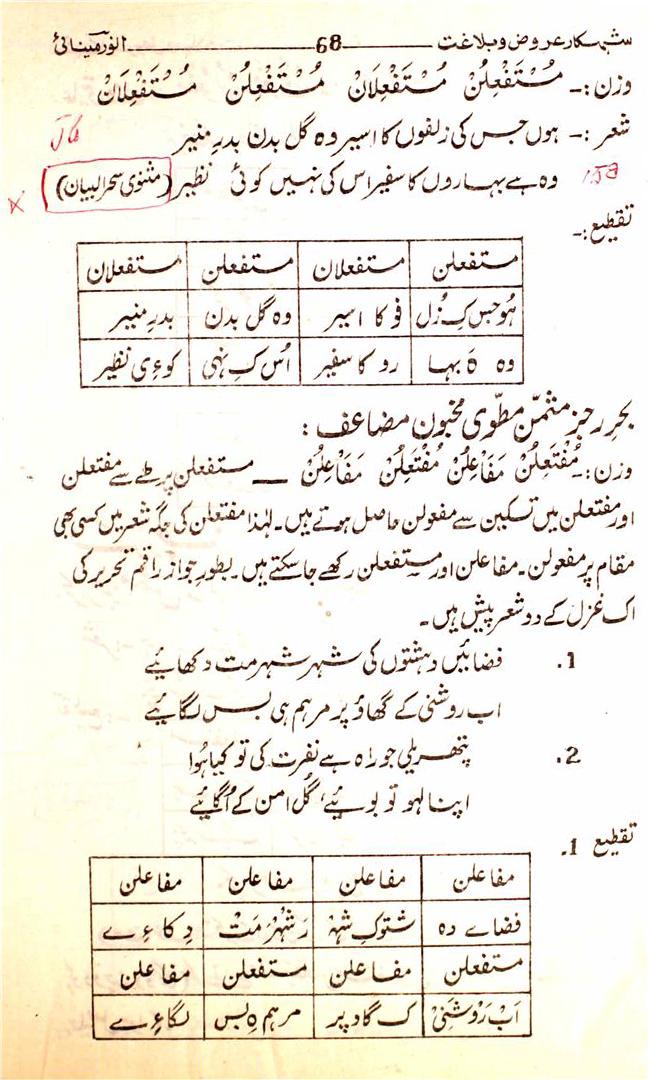 شہکار عروض و بلاغت ــــــ 68 ــــــ انور مینائی
وزن:۔ مُسْتَفْعِلُنْ مُسْتَفْعِلَانْ مُسْتَفْعِلُنْ مُسْتَفْعِلَانْ
شعر:۔ ہوں جس کی زلفوں کا اسیر وہ گل بدن بدرِ منیر
وہ ہے بہاروں کا سفیر اس کی نہیں کوئی نظیر (مثنوی سحر البیان)
تقطیع:۔
مستفعلن مستفعلان مستفعلن مستفعلان
ہُو جس کِ زُل فو کا اسیر وہ گل بدن بدرِ منیر
وہ ہَ بہا رو کا سفیر اُس کِ نہی کوءِی نظیر
بحرِ رجز مثمّن مطوّی مخبون مضاعف:
وزن:۔ مُفْتَعِلُنْ مَفَاعِلُنْ مُفْتَعِلُنْ مَفَاعِلُنْ ــــ مستفعلن پر طے سے مفتعلن
اور مفتعلن میں تسکین سے مفعولن حاصل ہوتے ہیں۔ لہٰذا مفتعلن کی جگہ شعر میں کسی بھی
مقام پر مفعولن۔ مفاعلن اور مستفعلن رکھے جاسکتے ہیں۔ بطورِ جواز راقم تحریر کی
اک غزل کے دو شعر پیش ہیں۔
1. فضائیں دہشتوں کی شہر شہر مت دکھائیے
اب روشنی کے گھاؤ پر مرہم ہی بس لگائیے
2. پتھریلی جو راہ ہے نفرت کی تو کیا ہُوا
اپنا لہو تو بوئیے، گُل امن کے اُگائیے
تقطیع 1۔
مفاعلن مفاعلن مفاعلن مفاعلن
فضاے دہ شتوکِ شہْ رَ شہْرَ مَتْ دِکاءِے
مستفعلن مفاعلن مستفعلن مفاعلن
اَبْ رَوْشَنِیْ کِ گاو پر مرہم ہِ بس لگاءِے